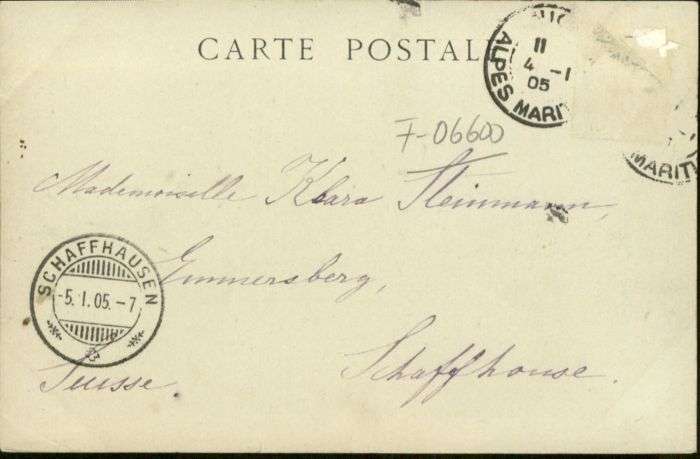 CARTE POSTAL
11
4 -1
05
ALPES MARIT
MARIT
F-06600
Mademoiselle Klara Steinmann,
Emmersberg,
Schaffhouse.
Suisse.
SCHAFFHAUSEN
-5. I. 05. -7